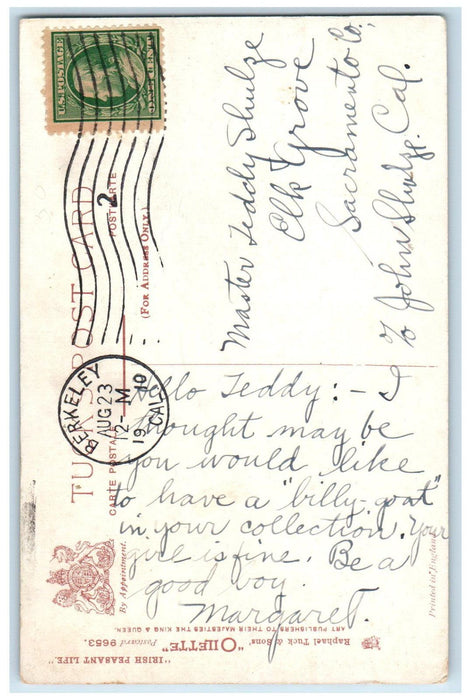 U.S. POSTAGE
ONE CENT
TUCK'S POST CARD
CARTE POSTALE
POSTKARTE
(FOR ADDRESS ONLY.)
2
BERKELEY
AUG 23
12-M
1910
CAL.
Master Teddy Shulze
Elk Grove
Sacramento Co,
Cal.
℅ John Shulze.
Hello Teddy:- I
thought may be
you would like
to have a "billy-goat"
in your collection. Your
girl is fine. Be a
good boy.
Margaret.
By Appointment.
Raphael Tuck & Sons' "OILETTE"
ART PUBLISHERS TO THEIR MAJESTIES THE KING & QUEEN.
"IRISH PEASANT LIFE."
Postcard 9653.
Printed in England.